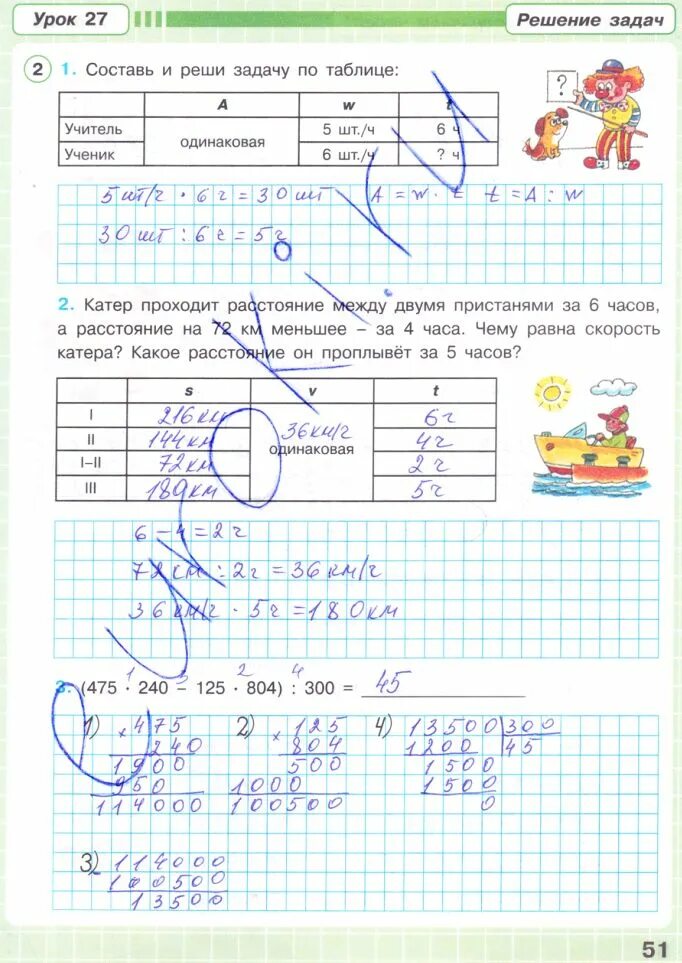 Урок 27 Решение задач
2 1. Составь и реши задачу по таблице:
A w t
Учитель одинаковая 5 шт./ч 6 ч
Ученик 6 шт./ч ? ч
?
5 шт/ч · 6 ч = 30 шт A = w · t t = A : w
30 шт : 6 ч = 5 ч
2. Катер проходит расстояние между двумя пристанями за 6 часов,
а расстояние на 72 км меньшее – за 4 часа. Чему равна скорость
катера? Какое расстояние он проплывёт за 5 часов?
s v t
I 216 км 36 км/ч одинаковая 6 ч
II 144 км 4 ч
I–II 72 км 2 ч
III 180 км 5 ч
6 – 4 = 2 ч
72 км : 2 ч = 36 км/ч
36 км/ч · 5 ч = 180 км
1 3 2 4
3. (475 · 240 – 125 · 804) : 300 = 45
1) × 475 2) × 125 4) 13500 300
240 804 1200 45
1900 500 1500
950 1000 1500
114000 100500 0
3) 114000
100500
13500
51
uroki.ru